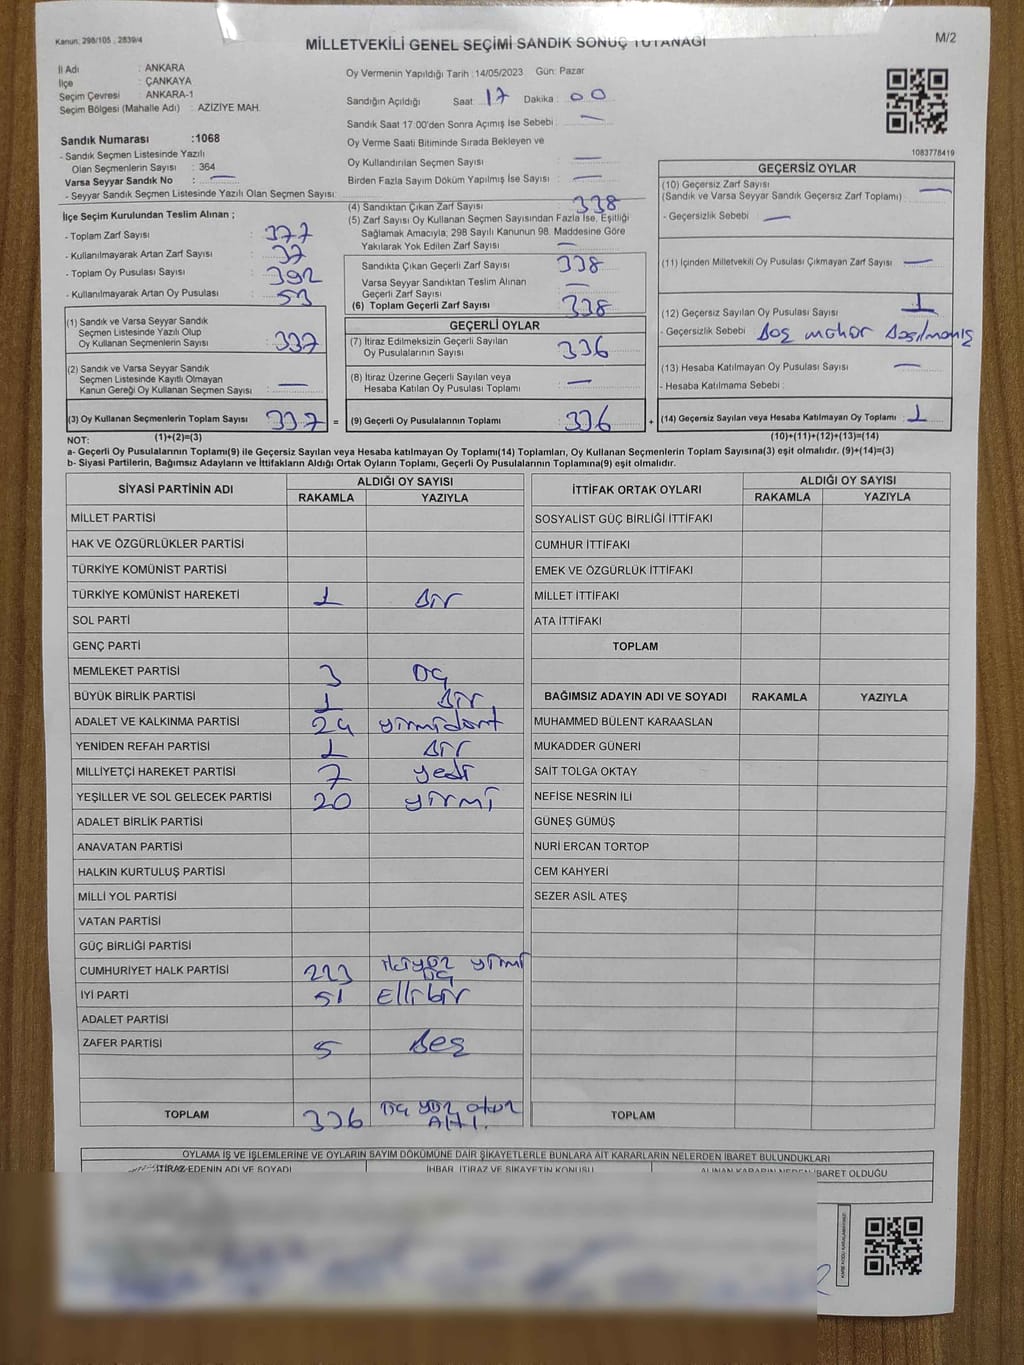 Kanun: 298/105 ; 2839/4
MİLLETVEKİLİ GENEL SEÇİMİ SANDIK SONUÇ TUTANAĞI
M/2
İl Adı : ANKARA
İlçe : ÇANKAYA
Seçim Çevresi : ANKARA-1
Seçim Bölgesi (Mahalle Adı) : AZİZİYE MAH.
Sandık Numarası :1068
- Sandık Seçmen Listesinde Yazılı
Olan Seçmenlerin Sayısı : 364
Varsa Seyyar Sandık No : —
- Seyyar Sandık Seçmen Listesinde Yazılı Olan Seçmen Sayısı:
Oy Vermenin Yapıldığı Tarih :14/05/2023 Gün: Pazar
Sandığın Açıldığı Saat : 17 Dakika : 00
Sandık Saat 17:00'den Sonra Açımış İse Sebebi : —
Oy Verme Saati Bitiminde Sırada Bekleyen ve
Oy Kullandırılan Seçmen Sayısı : —
Birden Fazla Sayım Döküm Yapılmış İse Sayısı : —
1083778419
İlçe Seçim Kurulundan Teslim Alınan ;
- Toplam Zarf Sayısı : 377
- Kullanılmayarak Artan Zarf Sayısı : 37
- Toplam Oy Pusulası Sayısı : 392
- Kullanılmayarak Artan Oy Pusulası : 53
(1) Sandık ve Varsa Seyyar Sandık
Seçmen Listesinde Yazılı Olup
Oy Kullanan Seçmenlerin Sayısı : 337
(2) Sandık ve Varsa Seyyar Sandık
Seçmen Listesinde Kayıtlı Olmayan
Kanun Gereği Oy Kullanan Seçmen Sayısı : —
(3) Oy Kullanan Seçmenlerin Toplam Sayısı : 337 =
(1)+(2)=(3)
(4) Sandıktan Çıkan Zarf Sayısı : 338
(5) Zarf Sayısı Oy Kullanan Seçmen Sayısından Fazla İse, Eşitliği
Sağlamak Amacıyla; 298 Sayılı Kanunun 98. Maddesine Göre
Yakılarak Yok Edilen Zarf Sayısı : —
Sandıkta Çıkan Geçerli Zarf Sayısı : 338
Varsa Seyyar Sandıktan Teslim Alınan
Geçerli Zarf Sayısı : —
(6) Toplam Geçerli Zarf Sayısı : 338
GEÇERLİ OYLAR
(7) İtiraz Edilmeksizin Geçerli Sayılan
Oy Pusulalarının Sayısı : 336
(8) İtiraz Üzerine Geçerli Sayılan veya
Hesaba Katılan Oy Pusulası Toplamı : —
(9) Geçerli Oy Pusulalarının Toplamı : 336 +
GEÇERSİZ OYLAR
(10) Geçersiz Zarf Sayısı : —
(Sandık ve Varsa Seyyar Sandık Geçersiz Zarf Toplamı)
- Geçersizlik Sebebi : —
(11) İçinden Milletvekili Oy Pusulası Çıkmayan Zarf Sayısı : —
(12) Geçersiz Sayılan Oy Pusulası Sayısı : 1
- Geçersizlik Sebebi : Boş mühür Basılmamış
(13) Hesaba Katılmayan Oy Pusulası Sayısı : —
- Hesaba Katılmama Sebebi :
(14) Geçersiz Sayılan veya Hesaba Katılmayan Oy Toplamı : 1
(10)+(11)+(12)+(13)=(14)
NOT:
a- Geçerli Oy Pusulalarının Toplamı(9) ile Geçersiz Sayılan veya Hesaba katılmayan Oy Toplamı(14) Toplamları, Oy Kullanan Seçmenlerin Toplam Sayısına(3) eşit olmalıdır. (9)+(14)=(3)
b- Siyasi Partilerin, Bağımsız Adayların ve İttifakların Aldığı Ortak Oyların Toplamı, Geçerli Oy Pusulalarının Toplamına(9) eşit olmalıdır.
SİYASİ PARTİNİN ADI ALDIĞI OY SAYISI
RAKAMLA YAZIYLA
MİLLET PARTİSİ
HAK VE ÖZGÜRLÜKLER PARTİSİ
TÜRKİYE KOMÜNİST PARTİSİ
TÜRKİYE KOMÜNİST HAREKETİ 1 Bir
SOL PARTİ
GENÇ PARTİ
MEMLEKET PARTİSİ 3 Üç
BÜYÜK BİRLİK PARTİSİ 1 Bir
ADALET VE KALKINMA PARTİSİ 24 yirmidört
YENİDEN REFAH PARTİSİ 1 Bir
MİLLİYETÇİ HAREKET PARTİSİ 7 yedi
YEŞİLLER VE SOL GELECEK PARTİSİ 20 yirmi
ADALET BİRLİK PARTİSİ
ANAVATAN PARTİSİ
HALKIN KURTULUŞ PARTİSİ
MİLLİ YOL PARTİSİ
VATAN PARTİSİ
GÜÇ BİRLİĞİ PARTİSİ
CUMHURİYET HALK PARTİSİ 223 ikiyüz yirmi üç
İYİ PARTİ 51 Ellibir
ADALET PARTİSİ
ZAFER PARTİSİ 5 Beş
TOPLAM 336 üç yüz otuz Altı.
İTTİFAK ORTAK OYLARI ALDIĞI OY SAYISI
RAKAMLA YAZIYLA
SOSYALIST GÜÇ BİRLİĞİ İTTİFAKI
CUMHUR İTTİFAKI
EMEK VE ÖZGÜRLÜK İTTİFAKI
MİLLET İTTİFAKI
ATA İTTİFAKI
TOPLAM
BAĞIMSIZ ADAYIN ADI VE SOYADI RAKAMLA YAZIYLA
MUHAMMED BÜLENT KARAASLAN
MUKADDER GÜNERİ
SAİT TOLGA OKTAY
NEFİSE NESRİN İLİ
GÜNEŞ GÜMÜŞ
NURİ ERCAN TORTOP
CEM KAHYERİ
SEZER ASİL ATEŞ
TOPLAM
OYLAMA İŞ VE İŞLEMLERİNE VE OYLARIN SAYIM DÖKÜMÜNE DAİR ŞİKAYETLERLE BUNLARA AİT KARARLARIN NELERDEN İBARET BULUNDUKLARI
İTİRAZ EDENİN ADI VE SOYADI İHBAR, İTİRAZ VE ŞİKAYETİN KONUSU ALINAN KARARIN NEDEN İBARET OLDUĞU